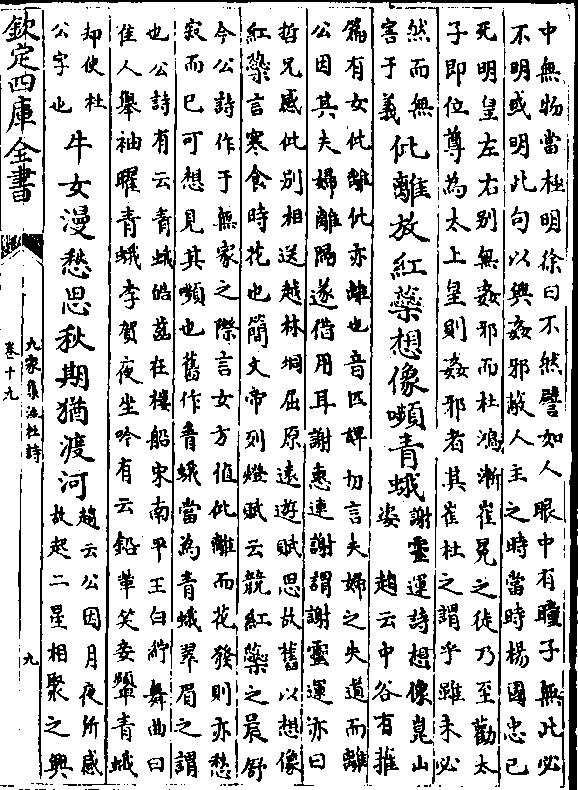 中無物當極明徐曰不然譬如人眼中有瞳子無此必
不明或明此句以興姦邪蔽人主之時當時楊國忠已
死明皇左右别無姦邪而杜鴻漸崔冕之徒乃至勸太
子即位尊為太上皇則姦邪者其崔杜之謂乎雖未必
然而無
害于義
仳離放紅蘂想像嚬青蛾
謝靈運詩想像崑山
姿 趙云中谷有蓷
篇有女仳離仳亦離也音匹譁切言夫婦之失道而離
公因其夫婦離隔遂借用耳謝惠連謝謂謝靈運亦曰
哲兄感仳别相送越林坰屈原遠遊賦思故舊以想像
紅蘂言寒食時花也簡文帝列燈賦云競紅蘂之晨舒
今公詩作于無家之際言女方值仳離而花發則亦愁
寂而已可想見其嚬也舊作青蛾當為青蛾翠眉之謂
也公詩有云青蛾皓齒在樓船宋南平王白紵舞曲曰
佳人舉袖曜青蛾李賀夜坐吟有云鉛華笑妾顰青蛾
却使杜
公字也
牛女漫愁思秋期猶渡河
趙云公因月夜所感
故起二星相聚之興
欽定四庫全書
九家集注杜詩
卷十九
九